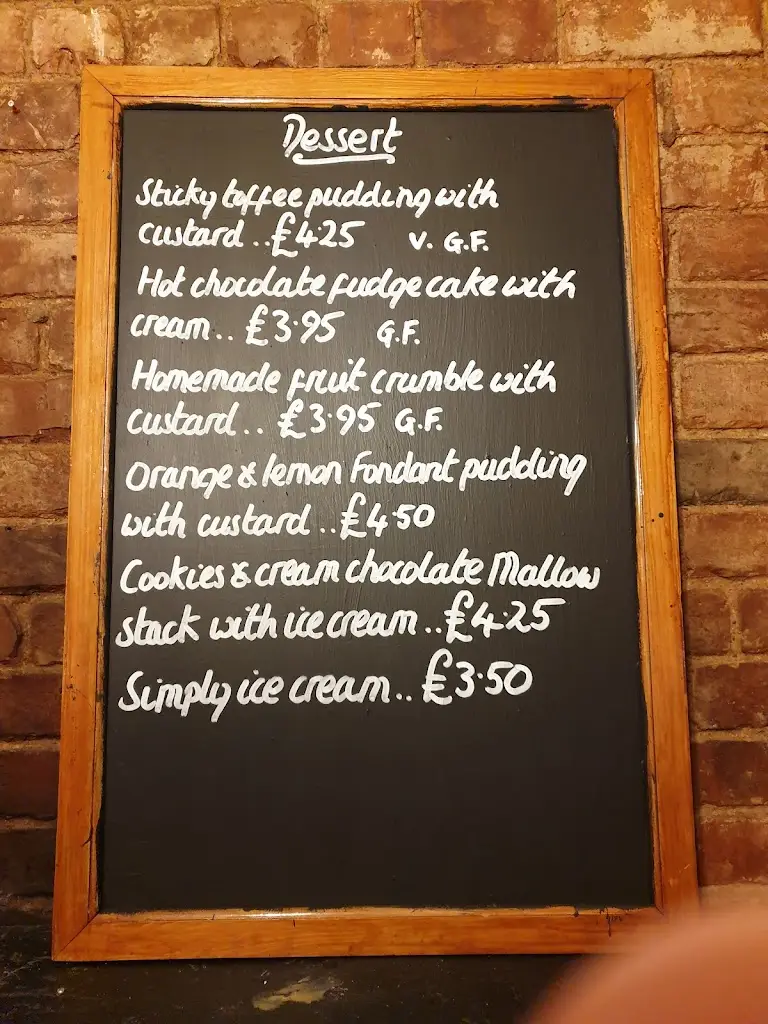 Dessert
Sticky toffee pudding with
custard..£4.25 V. G.F.
Hot chocolate fudge cake with
cream.. £3.95 G.F.
Homemade fruit crumble with
custard.. £3.95 G.F.
Orange & lemon Fondant pudding
with custard..£4.50
Cookies & cream chocolate Mallow
stack with ice cream..£4.25
Simply ice cream.. £3.50